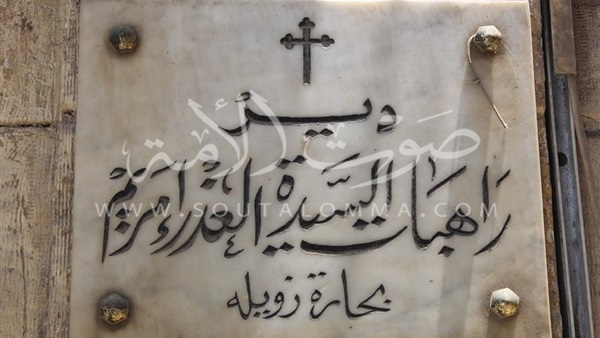 دير
راهبات السيدة العذراء مريم
بحارة زويله
صوت الأمة
WWW.SOUTALOMMA.COM